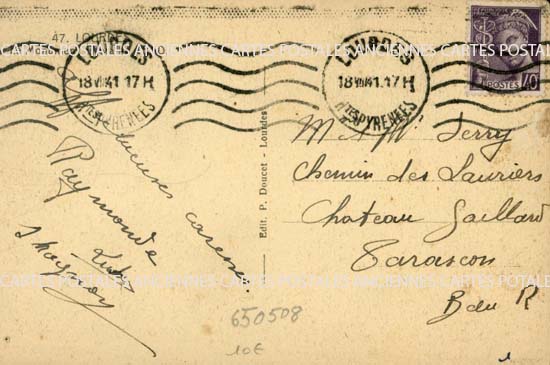 47. LOURDES
CARTES POSTALES ANCIENNES CARTES POSTALES ANCIENNES CARTES POSTALES
LOURDES
18 VII 41 17 H
HTES PYRENEES
LOURDES
18 VII 41 17 H
HTES PYRENEES
POSTES 40
caresses
Raymonde
Edit. P. Doucet - Lourdes
M et Mme Serry
Chemin des Lauriers
Chateau Gaillard
Tarascon
B du R
CARTES POSTALES ANCIENNES CARTES POSTALES ANCIENNES CARTES POSTALES
650508
10€